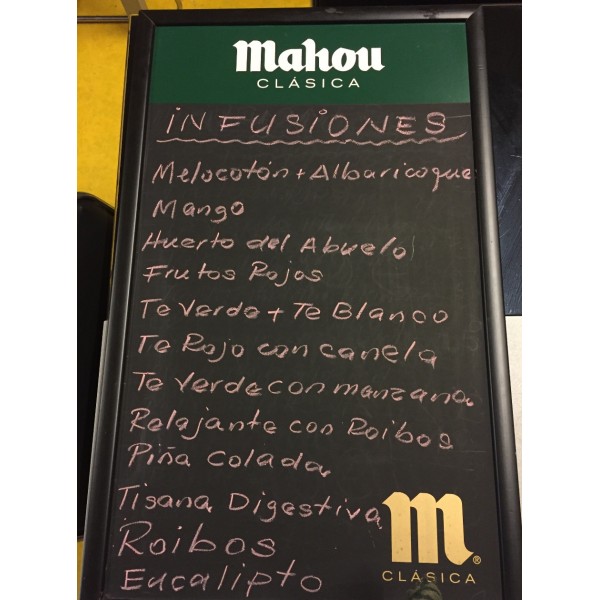 Mahou
CLÁSICA
INFUSIONES
Melocotón + Albaricoque
Mango
Huerto del Abuelo
Frutos Rojos
Te Verde + Te Blanco
Te Rojo con canela
Te Verde con manzana
Relajante con Roibos
Piña Colada
Tisana Digestiva
Roibos
Eucalipto
m®
CLÁSICA